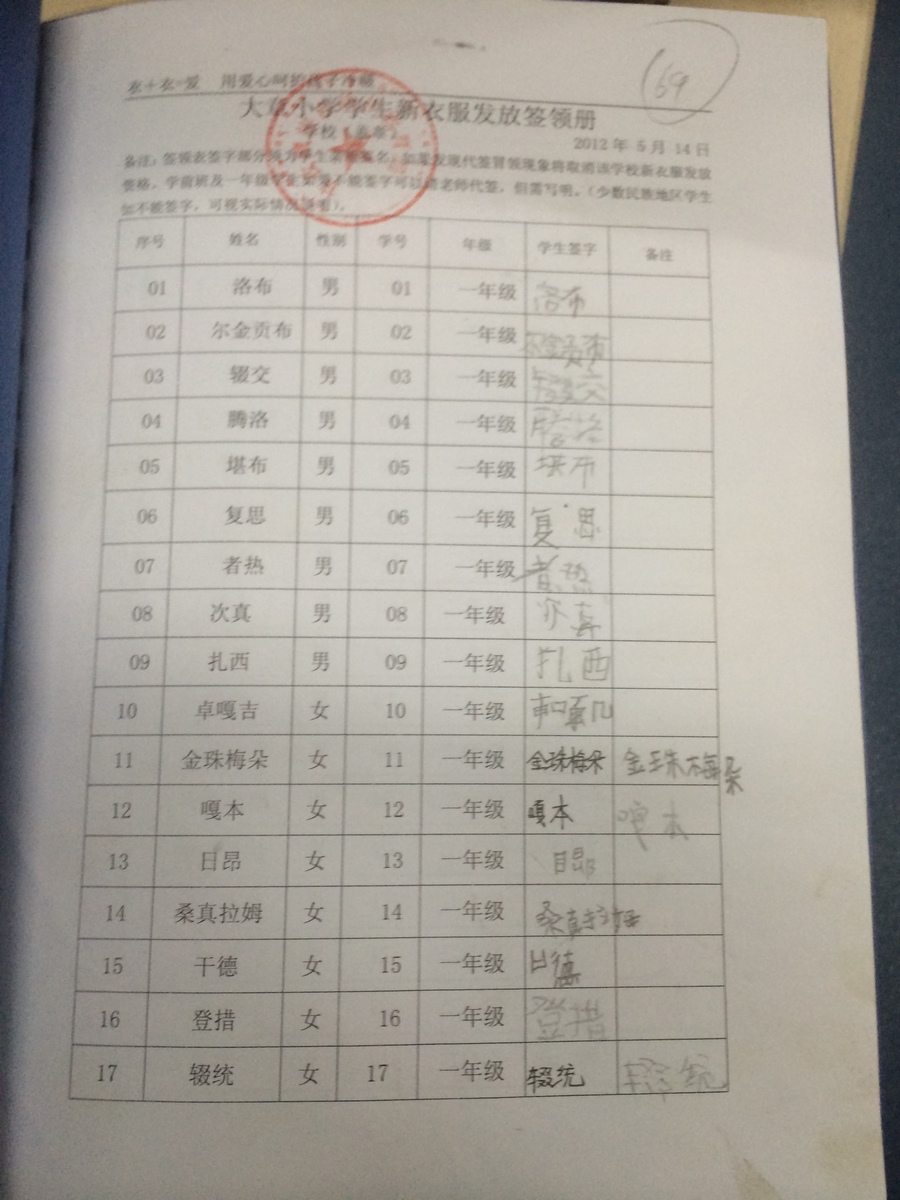 衣+衣=爱 用爱心呵护孩子冷暖
69
大章小学学生新衣服发放签领册
学校（盖章）
2012 年 5 月 14 日
备注：签领表签字部分须为学生亲笔签名，如果发现代签冒领现象将取消该学校新衣服发放
资格，学前班及一年级学生如爱不能签字可以请老师代签，但需写明。（少数民族地区学生
如不能签字，可视实际情况
序号 姓名 性别 学号 年级 学生签字 备注
01 洛布 男 01 一年级 洛布
02 尔金贡布 男 02 一年级
03 辍交 男 03 一年级 辍交
04 腾洛 男 04 一年级
05 堪布 男 05 一年级 堪布
06 复思 男 06 一年级 复思
07 者热 男 07 一年级 者热
08 次真 男 08 一年级 次真
09 扎西 男 09 一年级 扎西
10 卓嘎吉 女 10 一年级
11 金珠梅朵 女 11 一年级 金珠梅朵 金珠梅朵
12 嘎本 女 12 一年级 嘎本 嘎本
13 日昂 女 13 一年级 日昂
14 桑真拉姆 女 14 一年级 桑真拉姆
15 干德 女 15 一年级
16 登措 女 16 一年级 登措
17 辍统 女 17 一年级 辍统 辍统